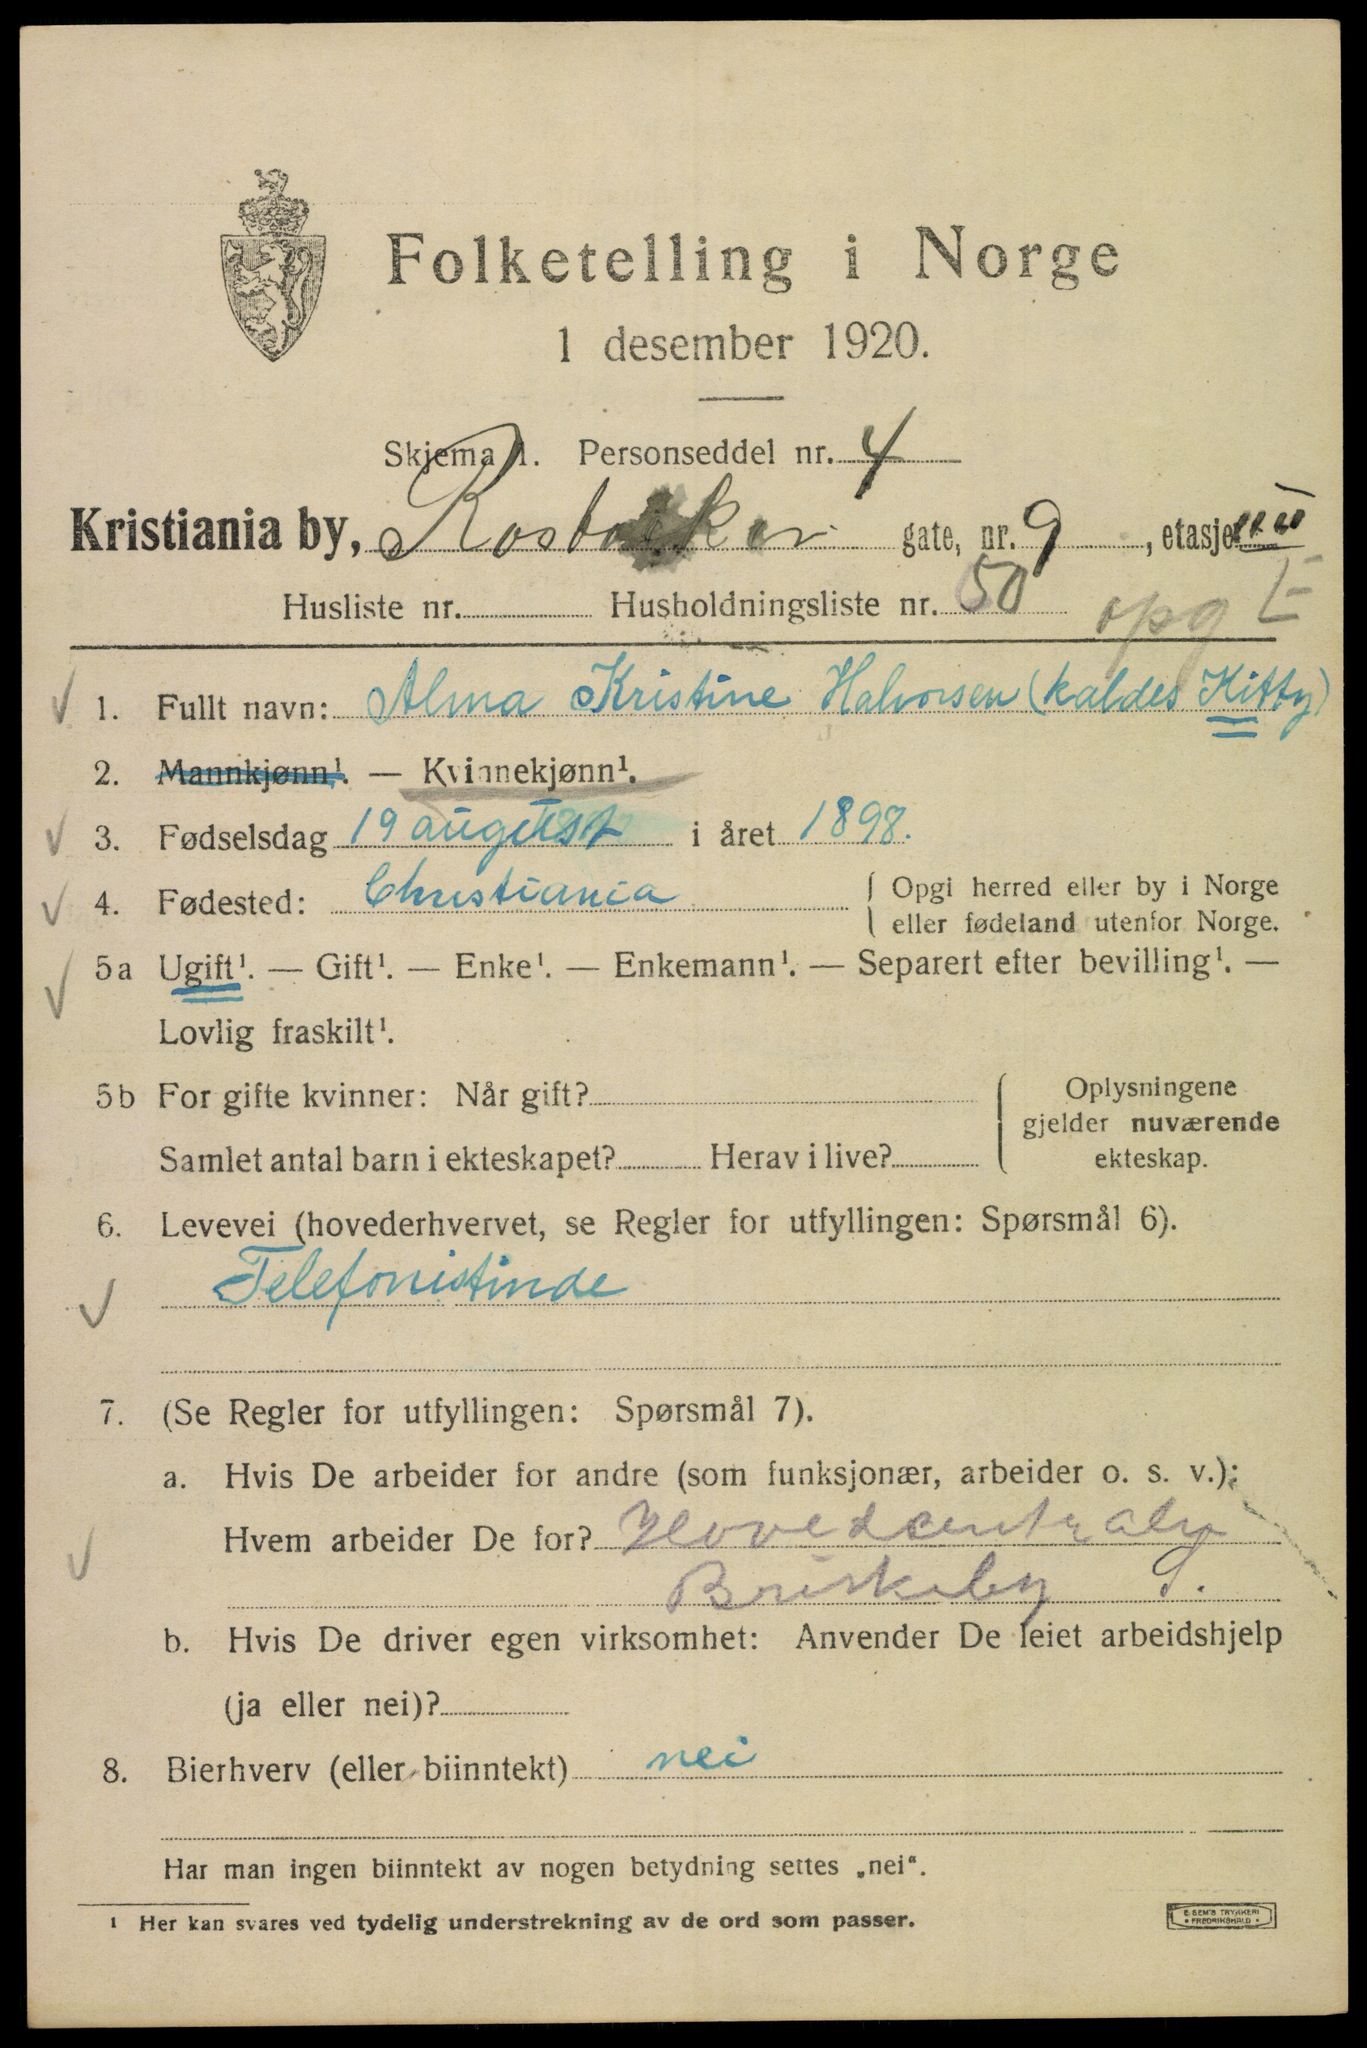 Folketelling i Norge
1 desember 1920.
Skjema 1. Personseddel nr. 4
Kristiania by, gate, nr. 9, etasje III
Husliste nr. Husholdningsliste nr. 50 opg I
1. Fullt navn: Alma Kristine Halvorsen (kaldes Kitty)
2. Mannkjønn¹. — Kvinnekjønn¹.
3. Fødselsdag 19 august i året 1898.
4. Fødested: Christiania { Opgi herred eller by i Norge
eller fødeland utenfor Norge.
5a Ugift¹. — Gift¹. — Enke¹. — Enkemann¹. — Separert efter bevilling¹. —
Lovlig fraskilt¹.
5b For gifte kvinner: Når gift? { Oplysningene
gjelder nuværende
Samlet antal barn i ekteskapet? Herav i live? ekteskap.
6. Levevei (hovederhvervet, se Regler for utfyllingen: Spørsmål 6).
Telefonistinde
7. (Se Regler for utfyllingen: Spørsmål 7).
a. Hvis De arbeider for andre (som funksjonær, arbeider o. s. v.):
Hvem arbeider De for? Hovedcentralen
Briskeby S.
b. Hvis De driver egen virksomhet: Anvender De leiet arbeidshjelp
(ja eller nei)?
8. Bierhverv (eller biinntekt) nei
Har man ingen biinntekt av nogen betydning settes „nei“.
¹ Her kan svares ved tydelig understrekning av de ord som passer.
E. SEM'S TRYKKERI
• FREDRIKSHALD •